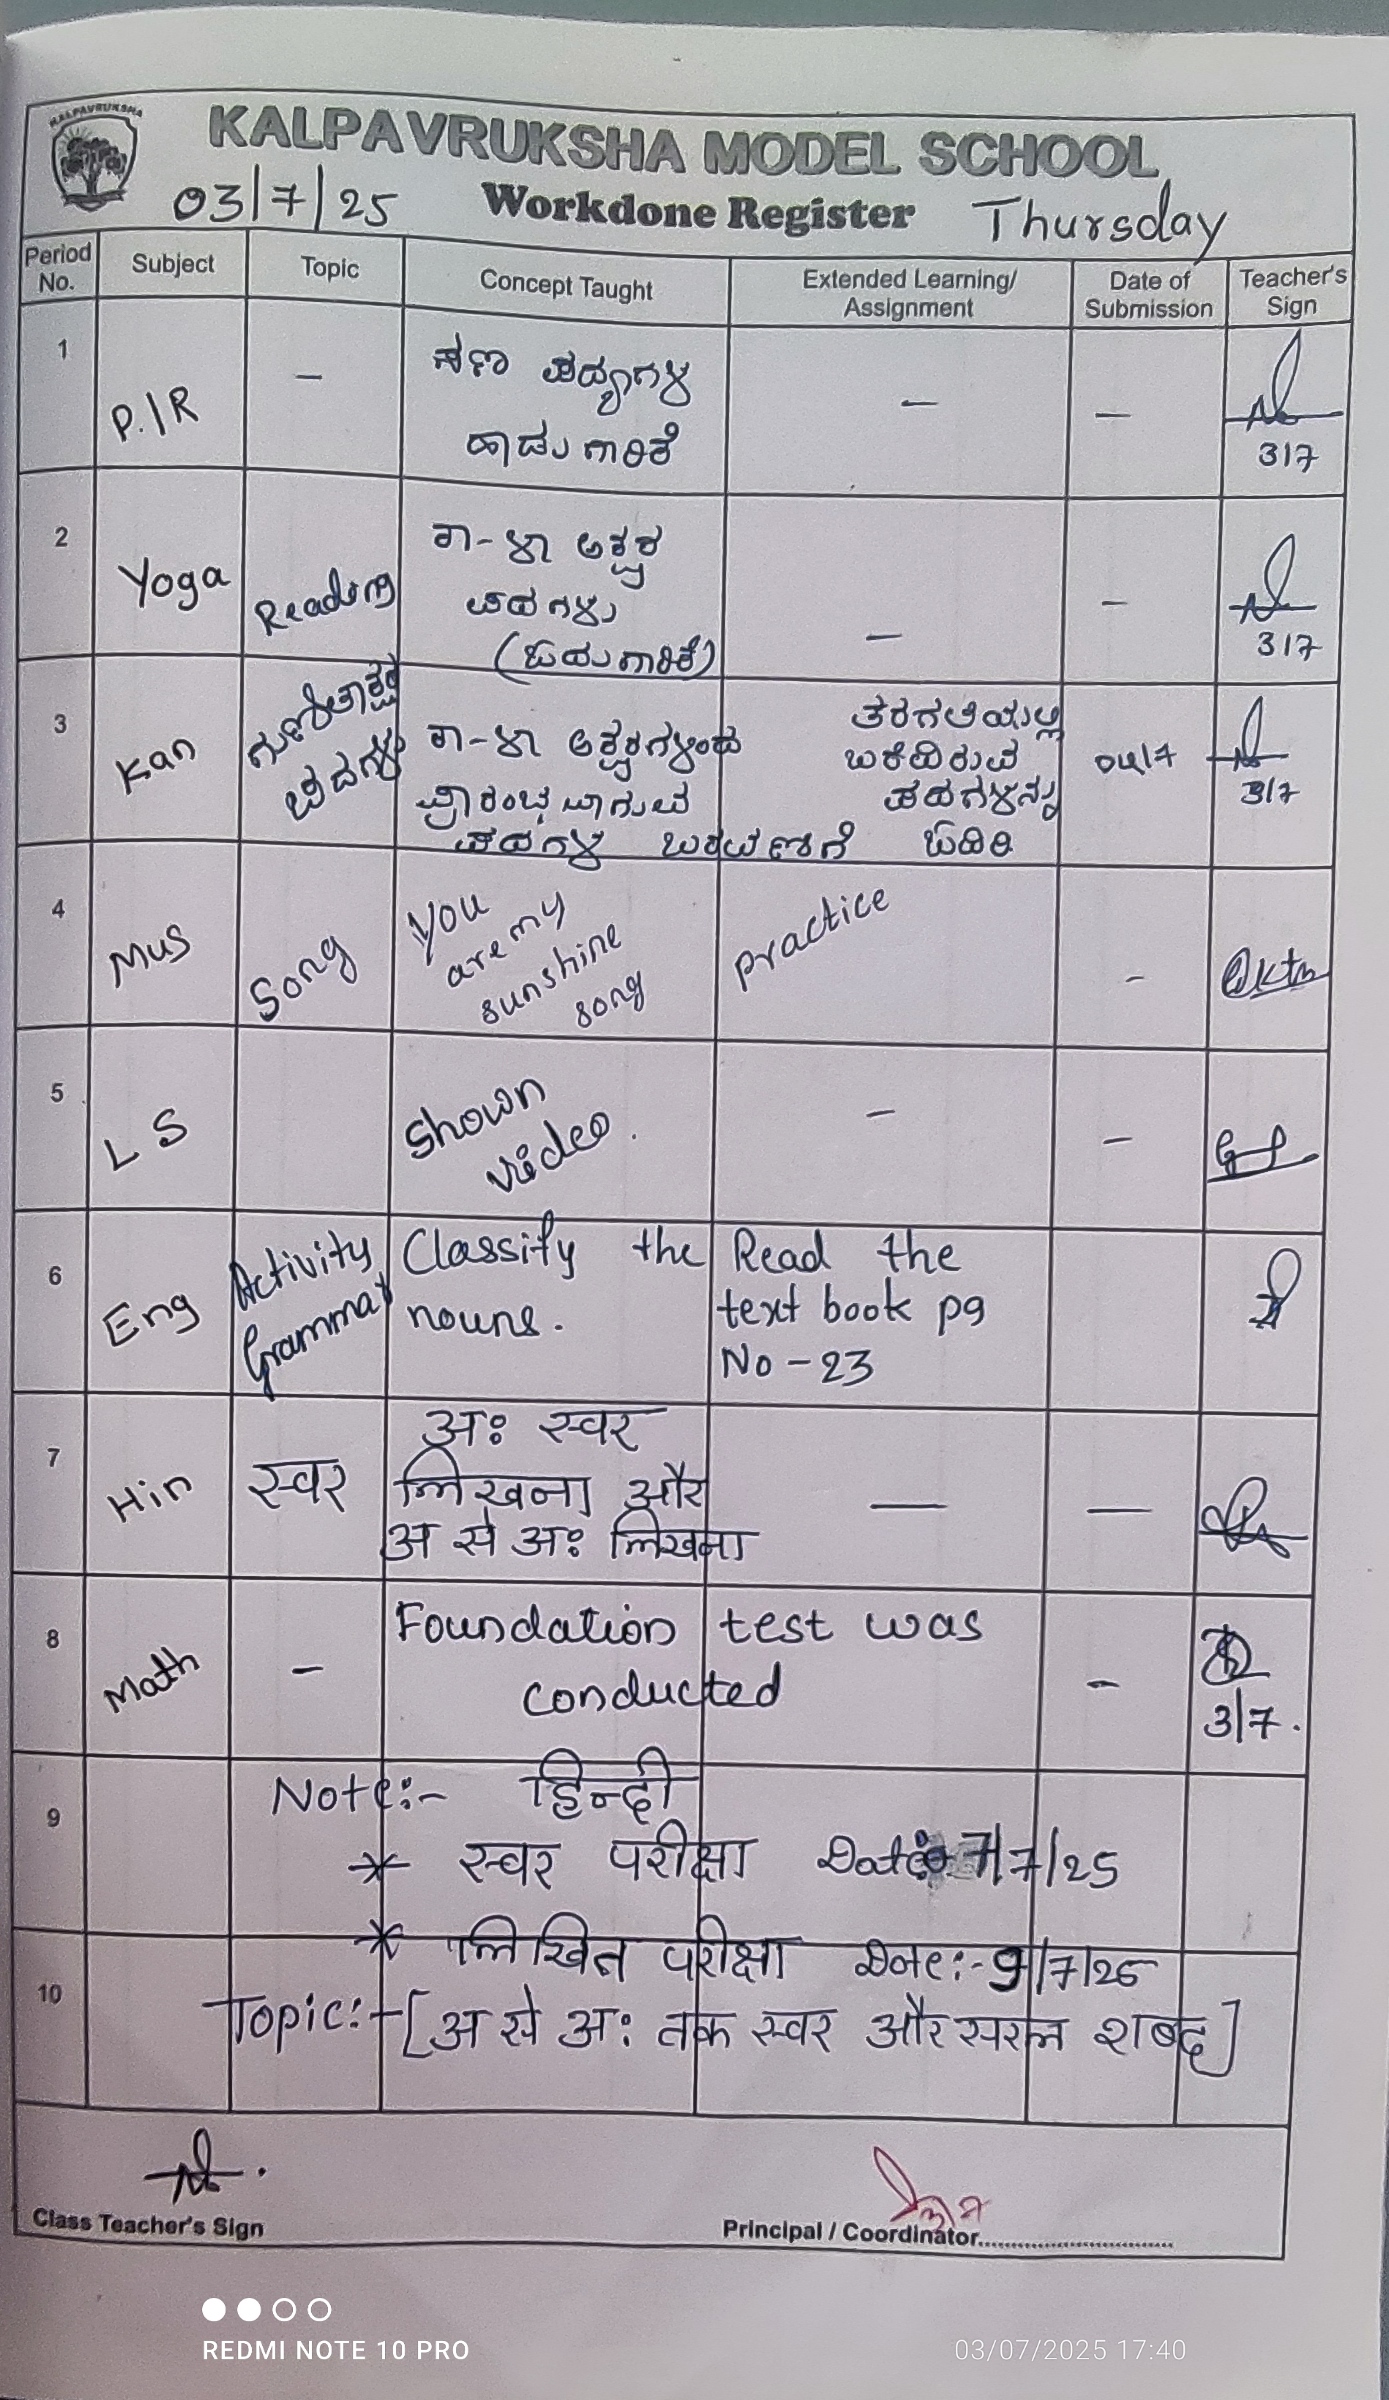 KALPAVRUKSHA
KALPAVRUKSHA MODEL SCHOOL
03/7/25 Workdone Register Thursday
Period No. Subject Topic Concept Taught Extended Learning/ Assignment Date of Submission Teacher's Sign
1 P.I R - ಪದ್ಯಗಳ - -
ಹಾಡುಗಾರಿಕೆ
3/7
2 Yoga Reading ಠಾ-ಳಾ ಅಕ್ಷರ - -
ಪದಗಳು
(ಓದುಗಾರಿಕೆ)
3/7
3 Kan ಗುಣಿತಾಕ್ಷರ ಪದಗಳು
ಠಾ-ಳಾ ಅಕ್ಷರಗಳಿಂದ
ಪ್ರಾರಂಭವಾಗುವ
ಪದಗಳ ಬರವಣಿಗೆ
ತರಗತಿಯಲ್ಲಿ
ಬರೆದಿರುವ
ಪದಗಳನ್ನು
ಓದಿರಿ
04/7
3/7
4 Mus Song You
are my
sunshine
song
practice -
5 L S shown
video. - -
6 Eng Activity Grammar Classify the
nouns.
Read the
text book pg
No - 23
7 Hin स्वर अः स्वर
लिखना और
अ से अः लिखना
— —
8 Math - Foundation test was
conducted -
3/7.
9 Note:- हिन्दी
* स्वर परीक्षा Date: 7/7/25
* लिखित परीक्षा Date:- 9/7/25
10 Topic:- [अ से अः तक स्वर और सरल शब्द]
Class Teacher's Sign
Principal / Coordinator
REDMI NOTE 10 PRO 03/07/2025 17:40